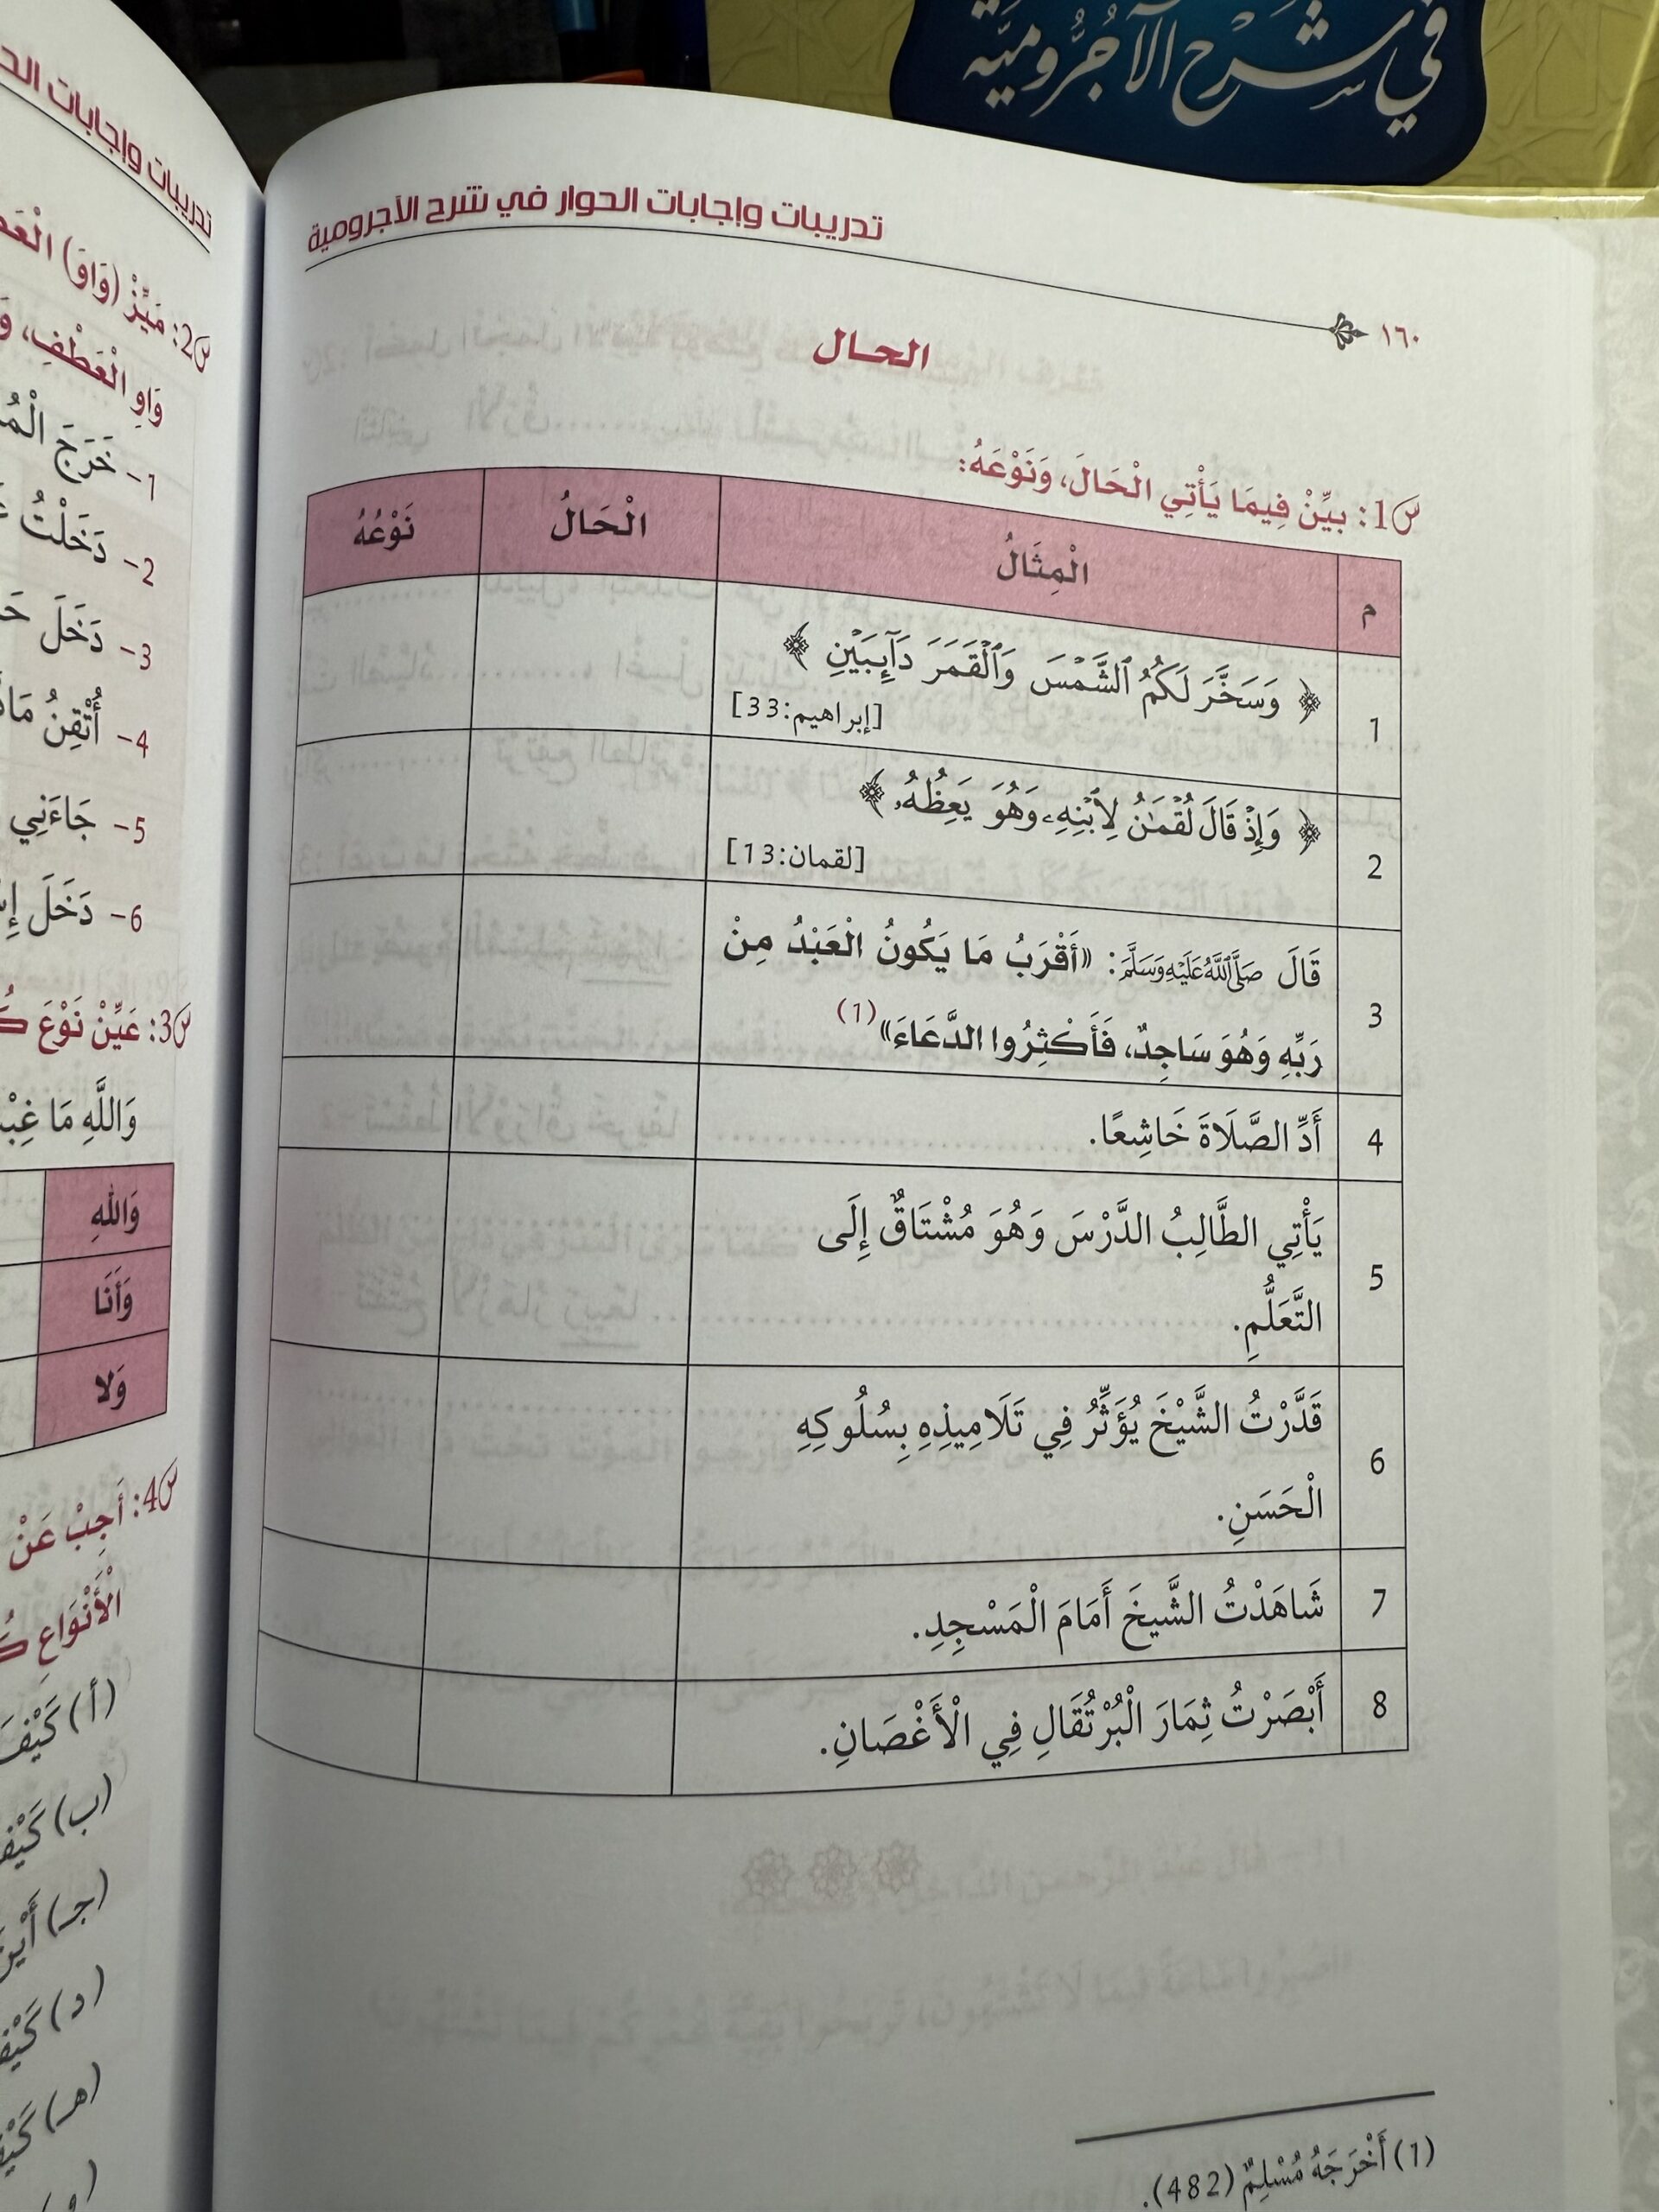 في شرح الآجرومية
تدريبات وإجابات الحوار في شرح الآجرومية
١٦٠
الحال
س1: بيِّنْ فِيمَا يَأْتِي الْحَالَ، وَنَوْعَهُ:
م الْمِثَالُ الْحَالُ نَوْعُهُ
1 ﴿ وَسَخَّرَ لَكُمُ ٱلشَّمْسَ وَٱلْقَمَرَ دَآئِبَيْنِ ﴾
[إبراهيم:33]
2 ﴿ وَإِذْ قَالَ لُقْمَٰنُ لِٱبْنِهِۦ وَهُوَ يَعِظُهُۥ ﴾
[لقمان:13]
3 قَالَ صَلَّى اللَّهُ عَلَيْهِ وَسَلَّمَ: «أَقْرَبُ مَا يَكُونُ الْعَبْدُ مِنْ
رَبِّهِ وَهُوَ سَاجِدٌ، فَأَكْثِرُوا الدَّعَاءَ»(1)
4 أَدِّ الصَّلَاةَ خَاشِعًا.
5 يَأْتِي الطَّالِبُ الدَّرْسَ وَهُوَ مُشْتَاقٌ إِلَى
التَّعَلُّمِ.
6 قَدَّرْتُ الشَّيْخَ يُؤَثِّرُ فِي تَلَامِيذِهِ بِسُلُوكِهِ
الْحَسَنِ.
7 شَاهَدْتُ الشَّيخَ أَمَامَ الْمَسْجِدِ.
8 أَبْصَرْتُ ثِمَارَ الْبُرْتُقَالِ فِي الْأَغْصَانِ.
(1) أَخْرَجَهُ مُسْلِمٌ (482).
تدريبات وإجابات
س2: مَيِّزْ (وَاوَ)
وَاوِ الْعَطْفِ،
1- خَرَجَ
2- دَخَلْتُ
3- دَخَلَ
4- أُتْقِنُ
5- جَاءَنِي
6- دَخَلَ
س3: عَيِّنْ نَوْعَ
وَاللَّهِ مَا
وَاللهِ
وَأَنَا
وَلا
س4: أَجِبْ عَنْ
الْأَنْوَاعِ
(أ) كَيْفَ
(ب)
(جـ)
(د)
(هـ)